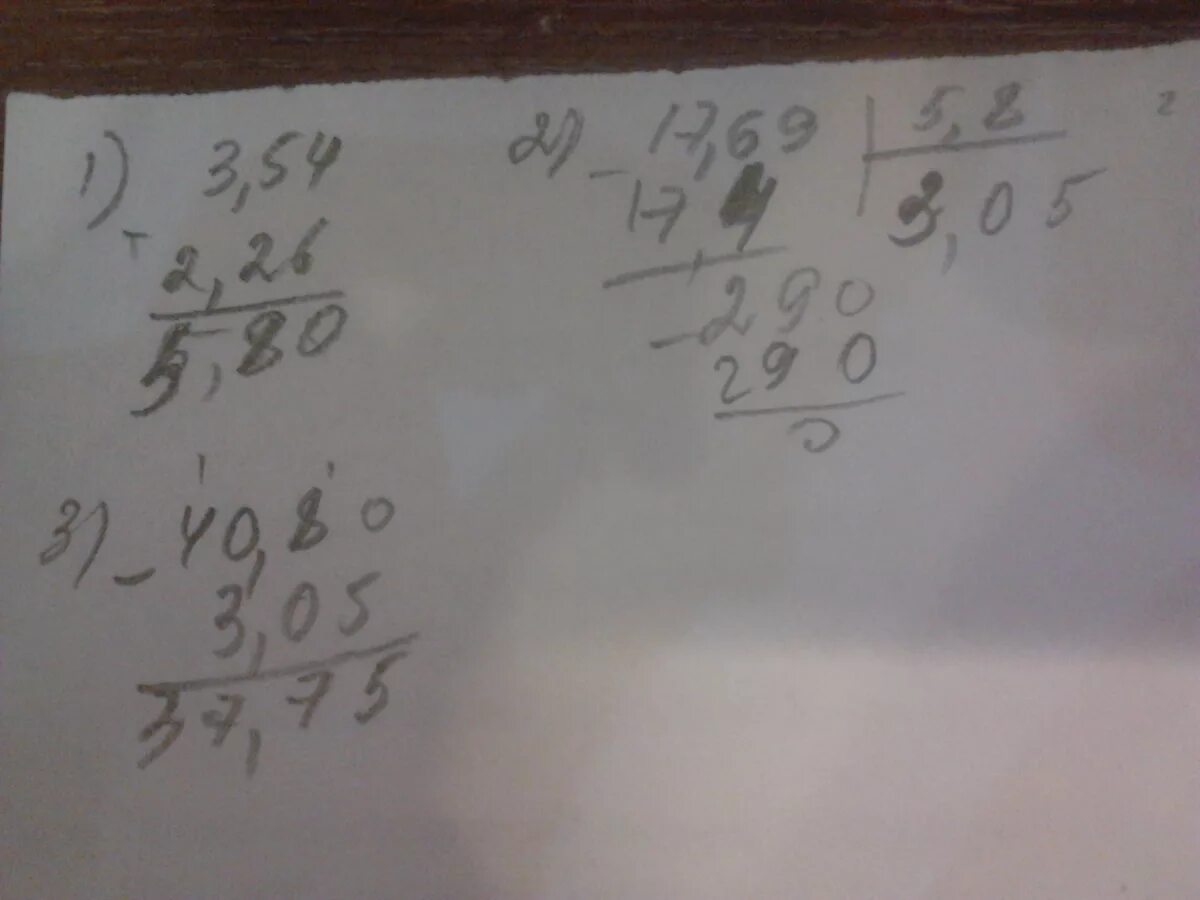 1) 3,54
+ 2,26
5,80
2) - 17,69 | 5,8
17,4 3,05
- 290
290
0
3) - 40,80
3,05
37,75